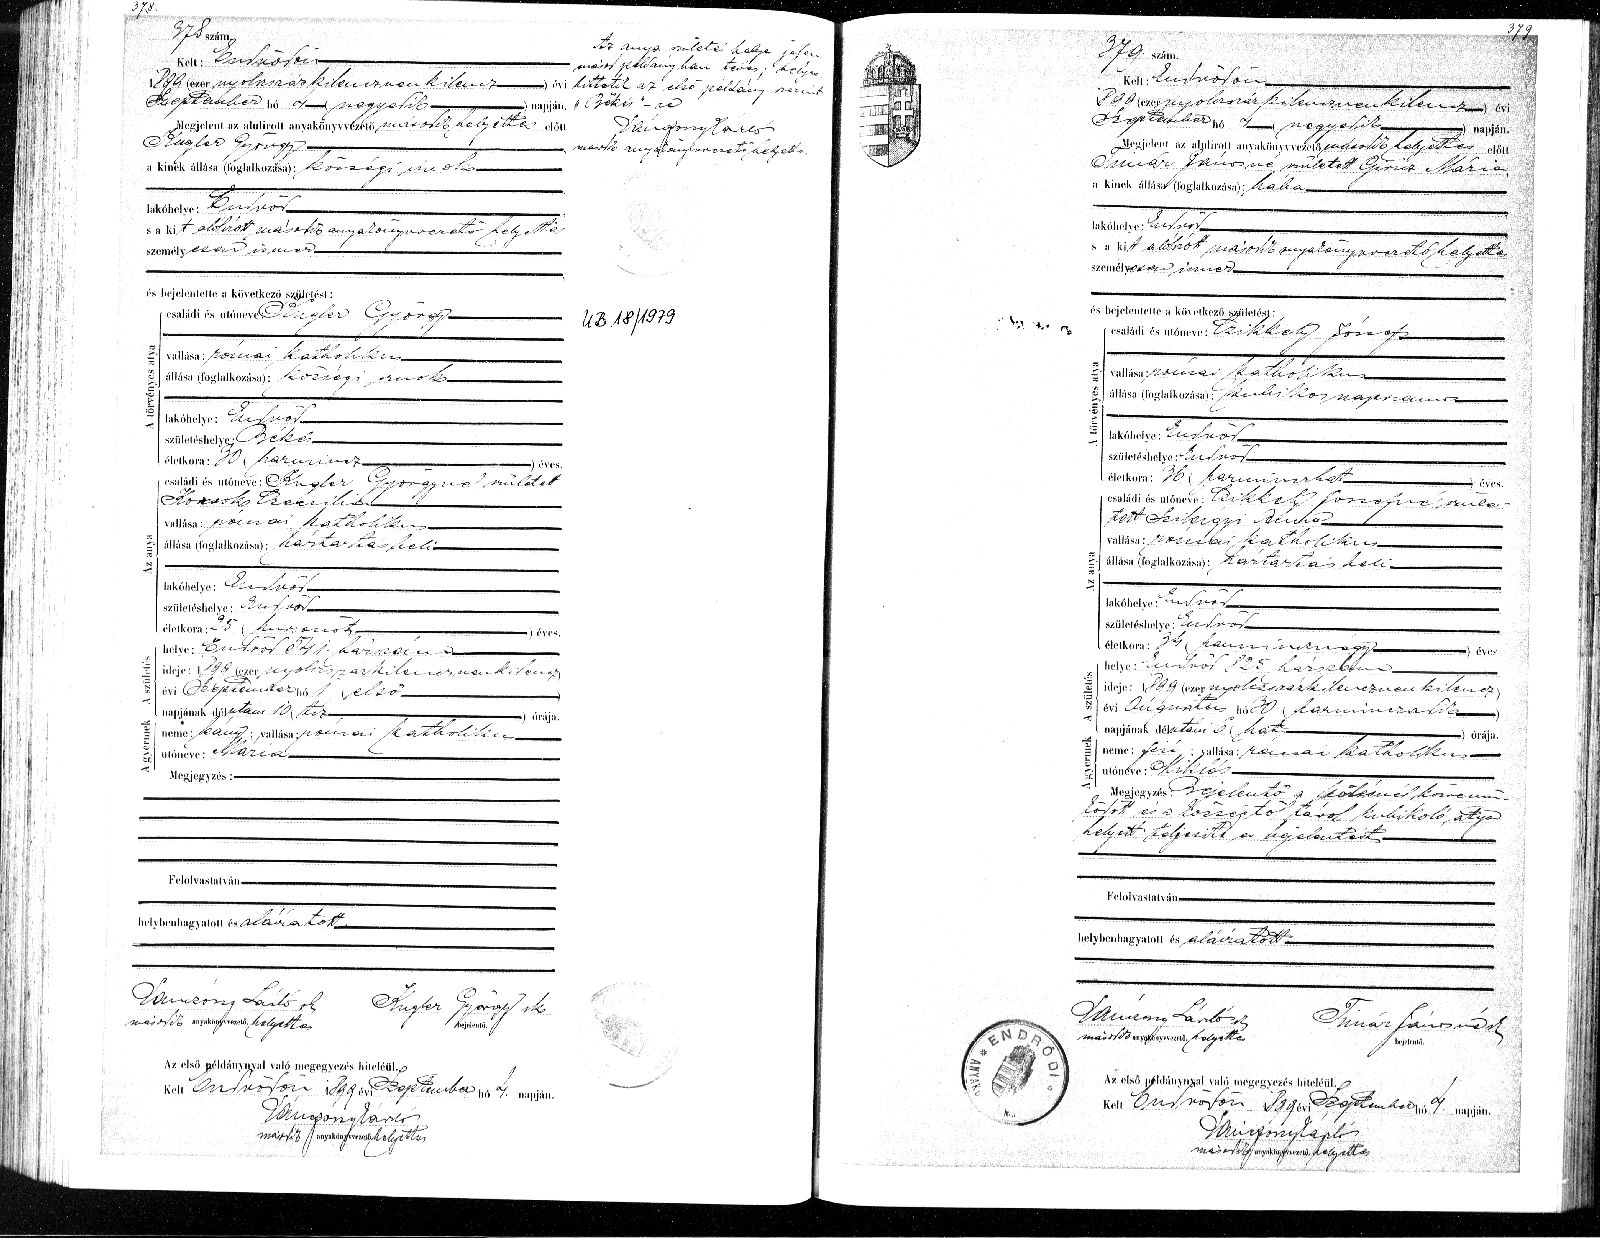 378.
378 szám.
Kelt: Endrődön
1899 (ezer nyolcszázkilenczvenkilencz) évi
Szeptember hó 4 (negyedik) napján.
Megjelent az alulirott anyakönyvvezető második helyettes előtt
Kugler György
a kinek állása (foglalkozása): községi irnok
lakóhelye: Endrőd
s a kit alólirott második anyakönyvvezető helyettes
személyesen ismer
és bejelentette a következő születést:
A törvényes atya
családi és utóneve: Kugler György
vallása: római katholikus
állása (foglalkozása): községi irnok
lakóhelye: Endrőd
születéshelye: Békés
életkora: 30 (harmincz) éves.
Az anya
családi és utóneve: Kugler Györgyné született
vallása: római katholikus
állása (foglalkozása): háztartásbeli
lakóhelye: Endrőd
születéshelye: Endrőd
életkora: 25 (huszonöt) éves.
A születés
helye: Endrőd 541. házszám
ideje: 1899 (ezer nyolcszázkilenczvenkilencz)
évi Szeptember hó 1 (első)
napjának délután 10 (tiz) órája.
A gyermek
neme: leány; vallása: római katholikus
utóneve: Mária
Megjegyzés:
Felolvastatván
helybenhagyatott és aláiratott
második anyakönyvvezető helyettes
Kugler György sk
bejelentő.
Az első példánynyal való megegyezés hiteléül.
Kelt Endrődön 1899 évi Szeptember hó 4. napján.
második anyakönyvvezető helyettes
Az anya születési helye jelen
másodpéldányban téves; helyes
bittetik az első példány szerint
"Békés"-re
második anyakönyvvezető helyettes.
UB 18/1979
379
379 szám.
Kelt: Endrődön
1899 (ezer nyolcszázkilenczvenkilencz) évi
Szeptember hó 4 (negyedik) napján.
Megjelent az alulirott anyakönyvvezető második helyettes előtt
Timár Jánosné született Mária
a kinek állása (foglalkozása): bába
lakóhelye: Endrőd
s a kit alólirott második anyakönyvvezető helyettes
személyesen ismer
és bejelentette a következő születést:
A törvényes atya
családi és utóneve: József
vallása: római katholikus
állása (foglalkozása): kubikos napszámos
lakóhelye: Endrőd
születéshelye: Endrőd
életkora: 36 (harminczhat) éves.
Az anya
családi és utóneve: Józsefné szüle-
tett Szilágyi
vallása: római katholikus
állása (foglalkozása): háztartásbeli
lakóhelye: Endrőd
születéshelye: Endrőd
életkora: 34 (harmincznégy) éves
A születés
helye: Endrőd 825 házszám
ideje: 1899 (ezer nyolcszázkilenczvenkilencz)
évi Augusztus hó 30 (harminczadik)
napjának délután 6 (hat) órája.
A gyermek
neme: fiu; vallása: római katholikus
utóneve: Miklós
Megjegyzés Bejelentő a szülésnél közremű-
ködött és a községtől távol kubikoló atya
helyett teljesitte a bejelentést
Felolvastatván
helybenhagyatott és aláiratott
második anyakönyvvezető helyettes
Timár Jánosné sk
bejelentő.
ENDRŐDI
Az első példánynyal való megegyezés hiteléül.
Kelt Endrődön 1899 évi Szeptember hó 4 napján.
második anyakönyvvezető helyettes